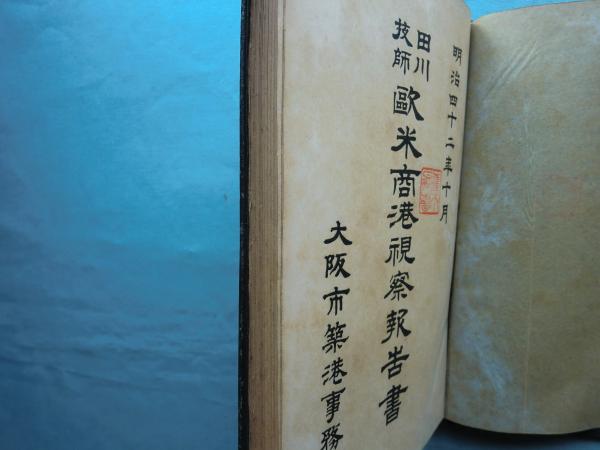 明治四十二年十月
田川
技師
歐米商港視察報告書
大阪市築港事務